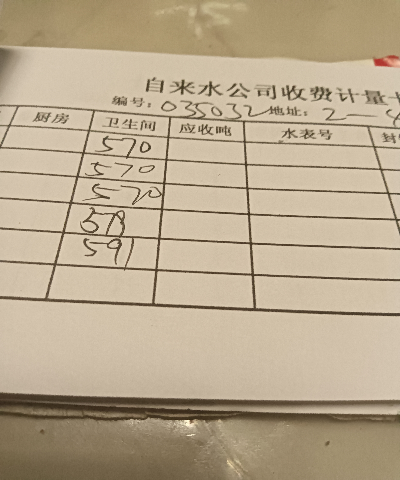 自来水公司收费计量卡
编号：035032 地址：2—4
厨房 卫生间 应收吨 水表号 封
570
570
570
578
591